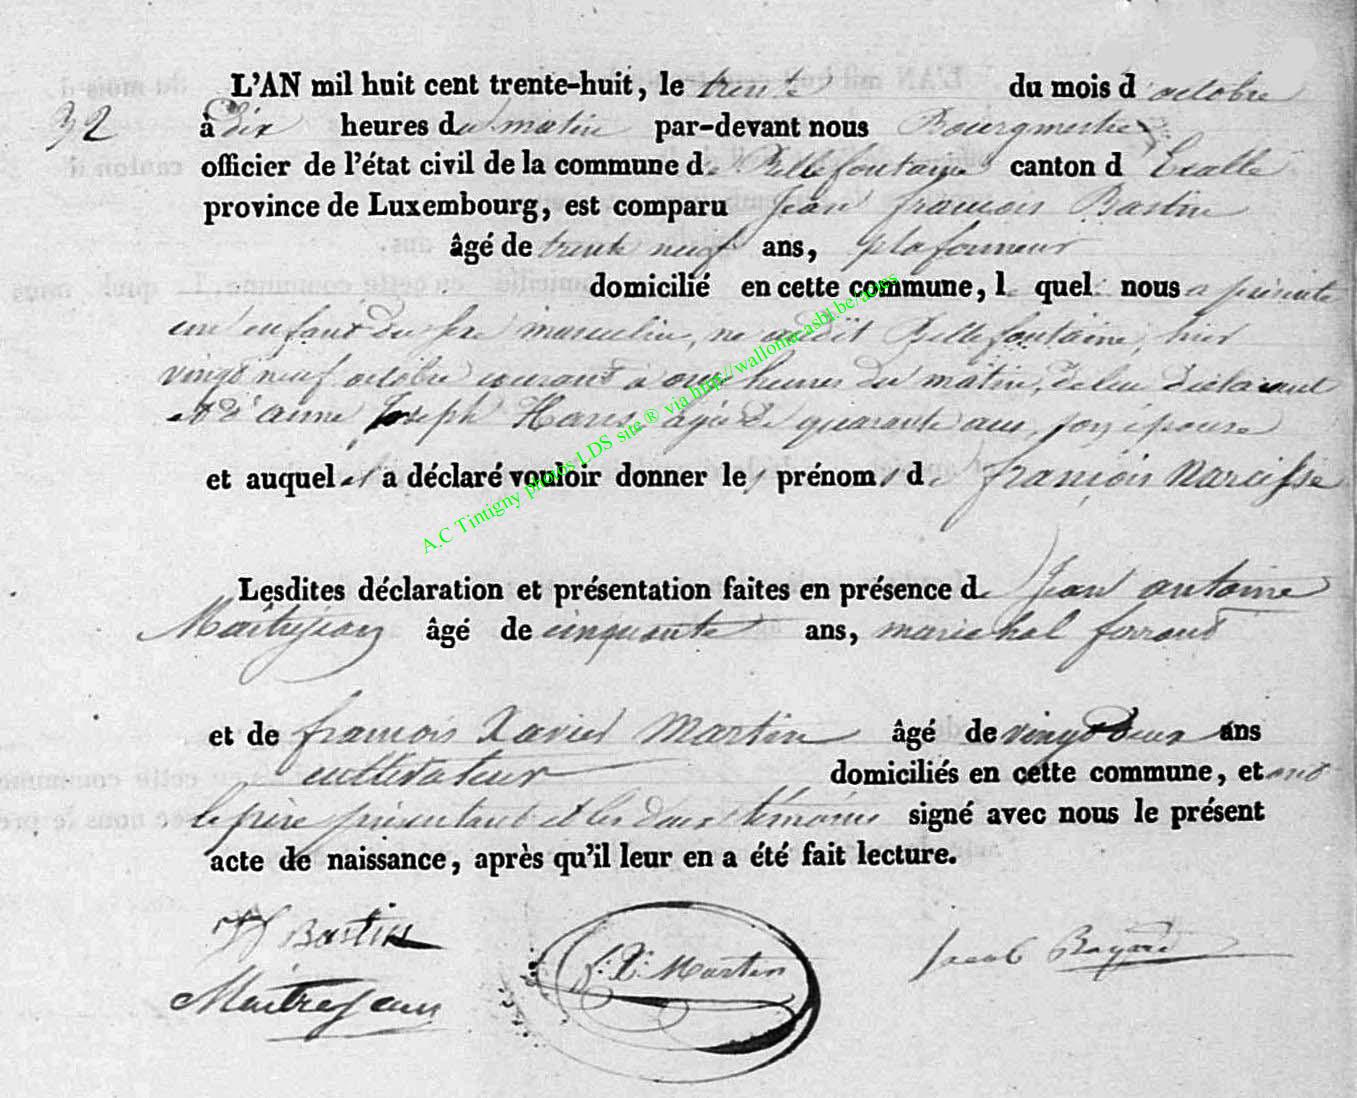 32
L'AN mil huit cent trente-huit, le trente du mois d'octobre
à dix heures du matin par-devant nous Bourgmestre
officier de l'état civil de la commune de Bellefontaine canton d'Etalle
province de Luxembourg, est comparu Jean françois Bastin
âgé de trente neuf ans, plafonneur
domicilié en cette commune, lequel nous a présenté
un enfant du sexe masculin, né audit Bellefontaine, hier
vingt neuf octobre courant à onze heures du matin, de lui déclarant
et d'anne Joseph Hans âgée de quarante ans son épouse
et auquel il a déclaré vouloir donner les prénoms de françois narcisse
Lesdites déclaration et présentation faites en présence de Jean antoine
Maitrejean âgé de cinquante ans, marechal ferrant
et de françois Xavier Martin âgé de vingt deux ans
cultivateur domiciliés en cette commune, et ont
le père présentant et les deux témoins signé avec nous le présent
acte de naissance, après qu'il leur en a été fait lecture.
JF Bastin
f: X: Martin
Jacob Bayard
Maitrejean
A.C Tintigny photos LDS site ® via http://wallonia-asbl.be/actes